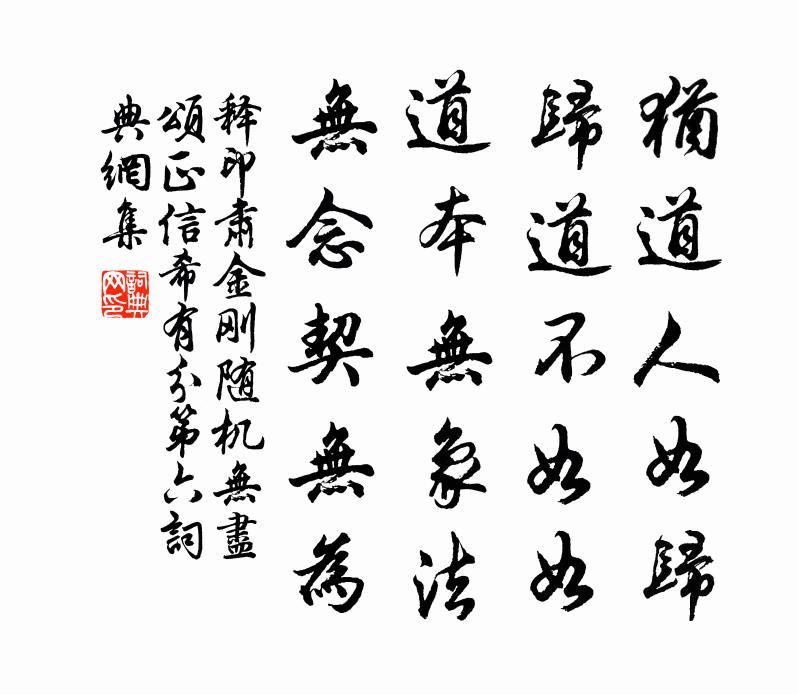 猶道人如歸
歸道不如如
道本無象法
無念契無為
释印肅金刚随机無盡
頌正信希有分第六詞
典網集
詞典
网印